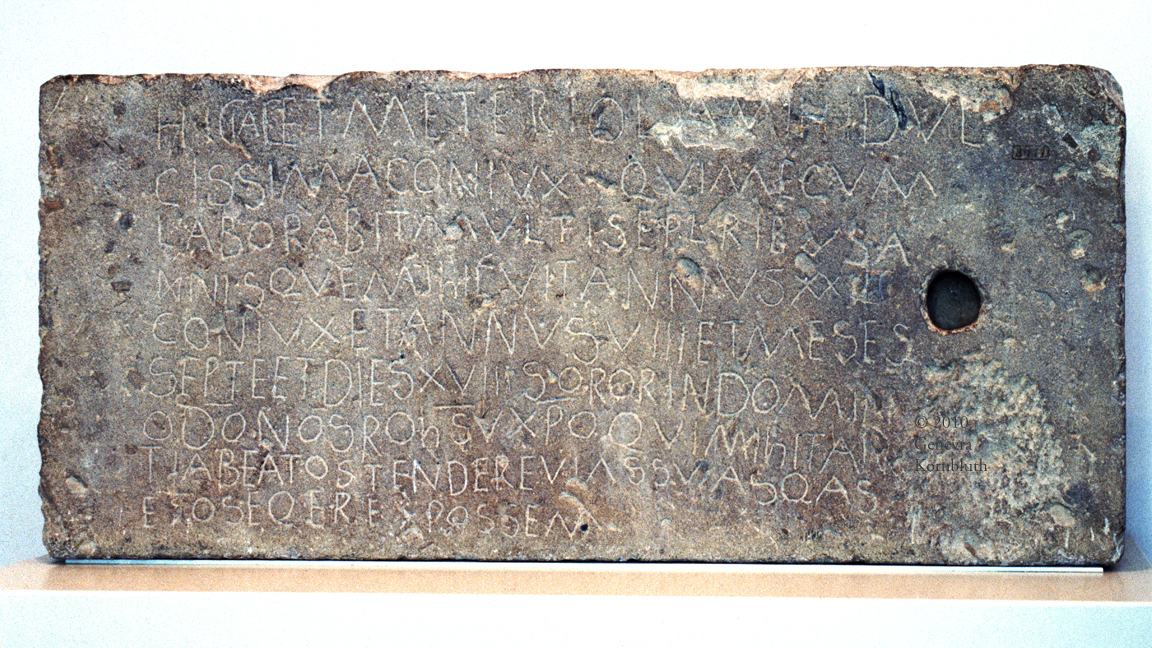 HIC IACET METERIOLA MIHI DUL
CISSIMA CONIUX QUI MECUM
LABORABIT MULTIS E PLRIBUS A
NNIS QVEM MIHI EVITANNVS XXIII
CONIVX ET ANNVS VIIII ET MESES
SEPTE ET DIES XVIIII SOROR IN DOMIN
O DO NOSRO hSV XPO QVI Mihi TAN
TI ABEAT OSTENDERE VIAS SVAS QAS
EIO SEQERE POSSEM
© 2010
Genevra
Kornbluth